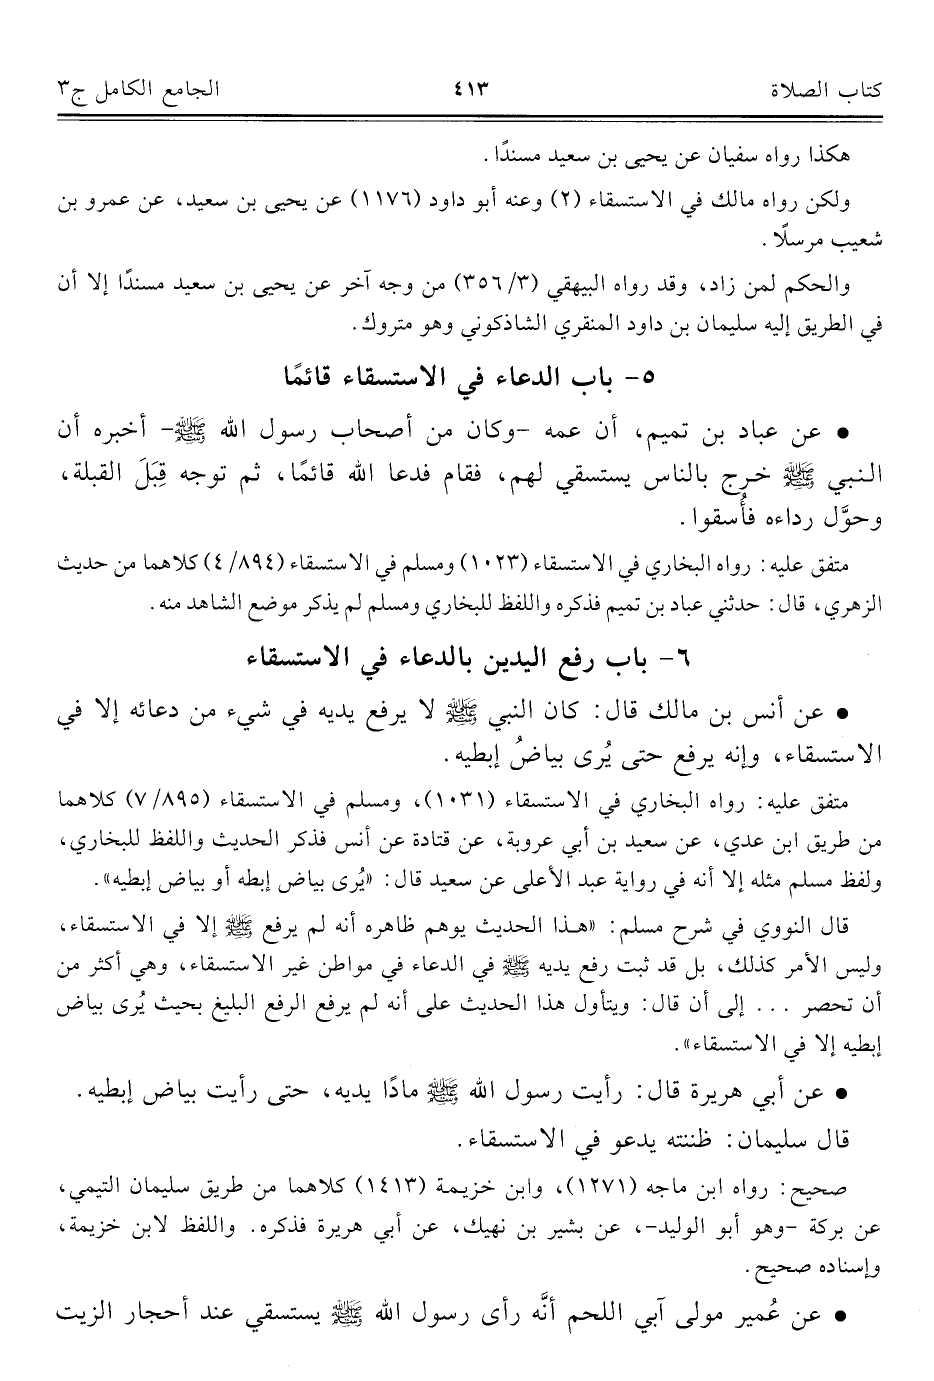 كتاب الصلاة ٤١٣ الجامع الكامل ج٣
هكذا رواه سفيان عن يحيى بن سعيد مسندًا.
ولكن رواه مالك في الاستسقاء (٢) وعنه أبو داود (١١٧٦) عن يحيى بن سعيد، عن عمرو بن
شعيب مرسلًا.
والحكم لمن زاد، وقد رواه البيهقي (٣/ ٣٥٦) من وجه آخر عن يحيى بن سعيد مسندًا إلا أن
في الطريق إليه سليمان بن داود المنقري الشاذكوني وهو متروك.
٥- باب الدعاء في الاستسقاء قائمًا
• عن عباد بن تميم، أن عمه -وكان من أصحاب رسول الله ﷺ- أخبره أن
النبي ﷺ خرج بالناس يستسقي لهم، فقام فدعا الله قائمًا، ثم توجه قِبَلَ القبلة،
وحوَّل رداءه فأُسقوا.
متفق عليه: رواه البخاري في الاستسقاء (١٠٢٣) ومسلم في الاستسقاء (٨٩٤/ ٤) كلاهما من حديث
الزهري، قال: حدثني عباد بن تميم فذكره واللفظ للبخاري ومسلم لم يذكر موضع الشاهد منه.
٦- باب رفع اليدين بالدعاء في الاستسقاء
• عن أنس بن مالك قال: كان النبي ﷺ لا يرفع يديه في شيء من دعائه إلا في
الاستسقاء، وإنه يرفع حتى يُرى بياضُ إبطيه.
متفق عليه: رواه البخاري في الاستسقاء (١٠٣١)، ومسلم في الاستسقاء (٨٩٥/ ٧) كلاهما
من طريق ابن عدي، عن سعيد بن أبي عروبة، عن قتادة عن أنس فذكر الحديث واللفظ للبخاري،
ولفظ مسلم مثله إلا أنه في رواية عبد الأعلى عن سعيد قال: «يُرى بياض إبطه أو بياض إبطيه».
قال النووي في شرح مسلم: «هذا الحديث يوهم ظاهره أنه لم يرفع ﷺ إلا في الاستسقاء،
وليس الأمر كذلك، بل قد ثبت رفع يديه ﷺ في الدعاء في مواطن غير الاستسقاء، وهي أكثر من
أن تحصر ... إلى أن قال: ويتأول هذا الحديث على أنه لم يرفع الرفع البليغ بحيث يُرى بياض
إبطيه إلا في الاستسقاء».
• عن أبي هريرة قال: رأيت رسول الله ﷺ مادًا يديه، حتى رأيت بياض إبطيه.
قال سليمان: ظننته يدعو في الاستسقاء.
صحيح: رواه ابن ماجه (١٢٧١)، وابن خزيمة (١٤١٣) كلاهما من طريق سليمان التيمي،
عن بركة -وهو أبو الوليد-، عن بشير بن نهيك، عن أبي هريرة فذكره. واللفظ لابن خزيمة،
وإسناده صحيح.
• عن عُمير مولى آبي اللحم أنَّه رأى رسول الله ﷺ يستسقي عند أحجار الزيت